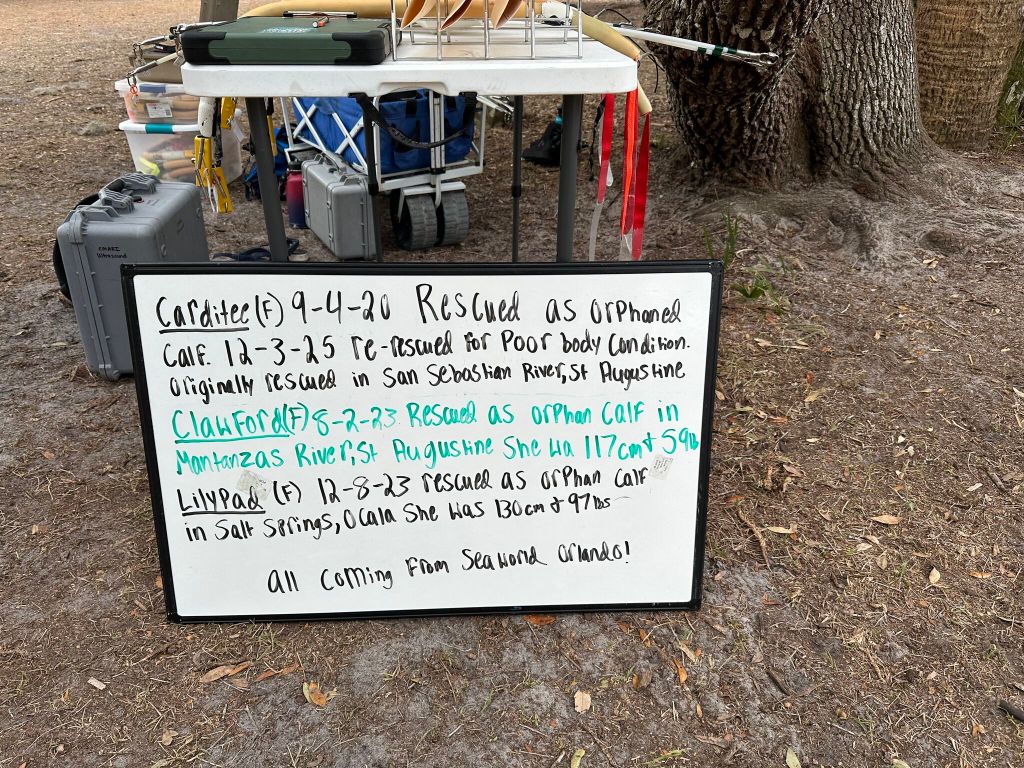 CMARI
Ultrasound
Carditee (F) 9-4-20 Rescued as orphaned
Calf. 12-3-25 re-rescued for Poor body Condition.
Originally rescued in San Sebastian River, St Augustine
Clawford (F) 8-2-23 Rescued as orphan Calf in
Mantanzas River, St Augustine She Wa 117cm & 59lb
LilyPad (F) 12-8-23 rescued as orphan Calf
in Salt Springs, Ocala She Was 130cm & 97lbs
All Coming From SeaWorld Orlando!